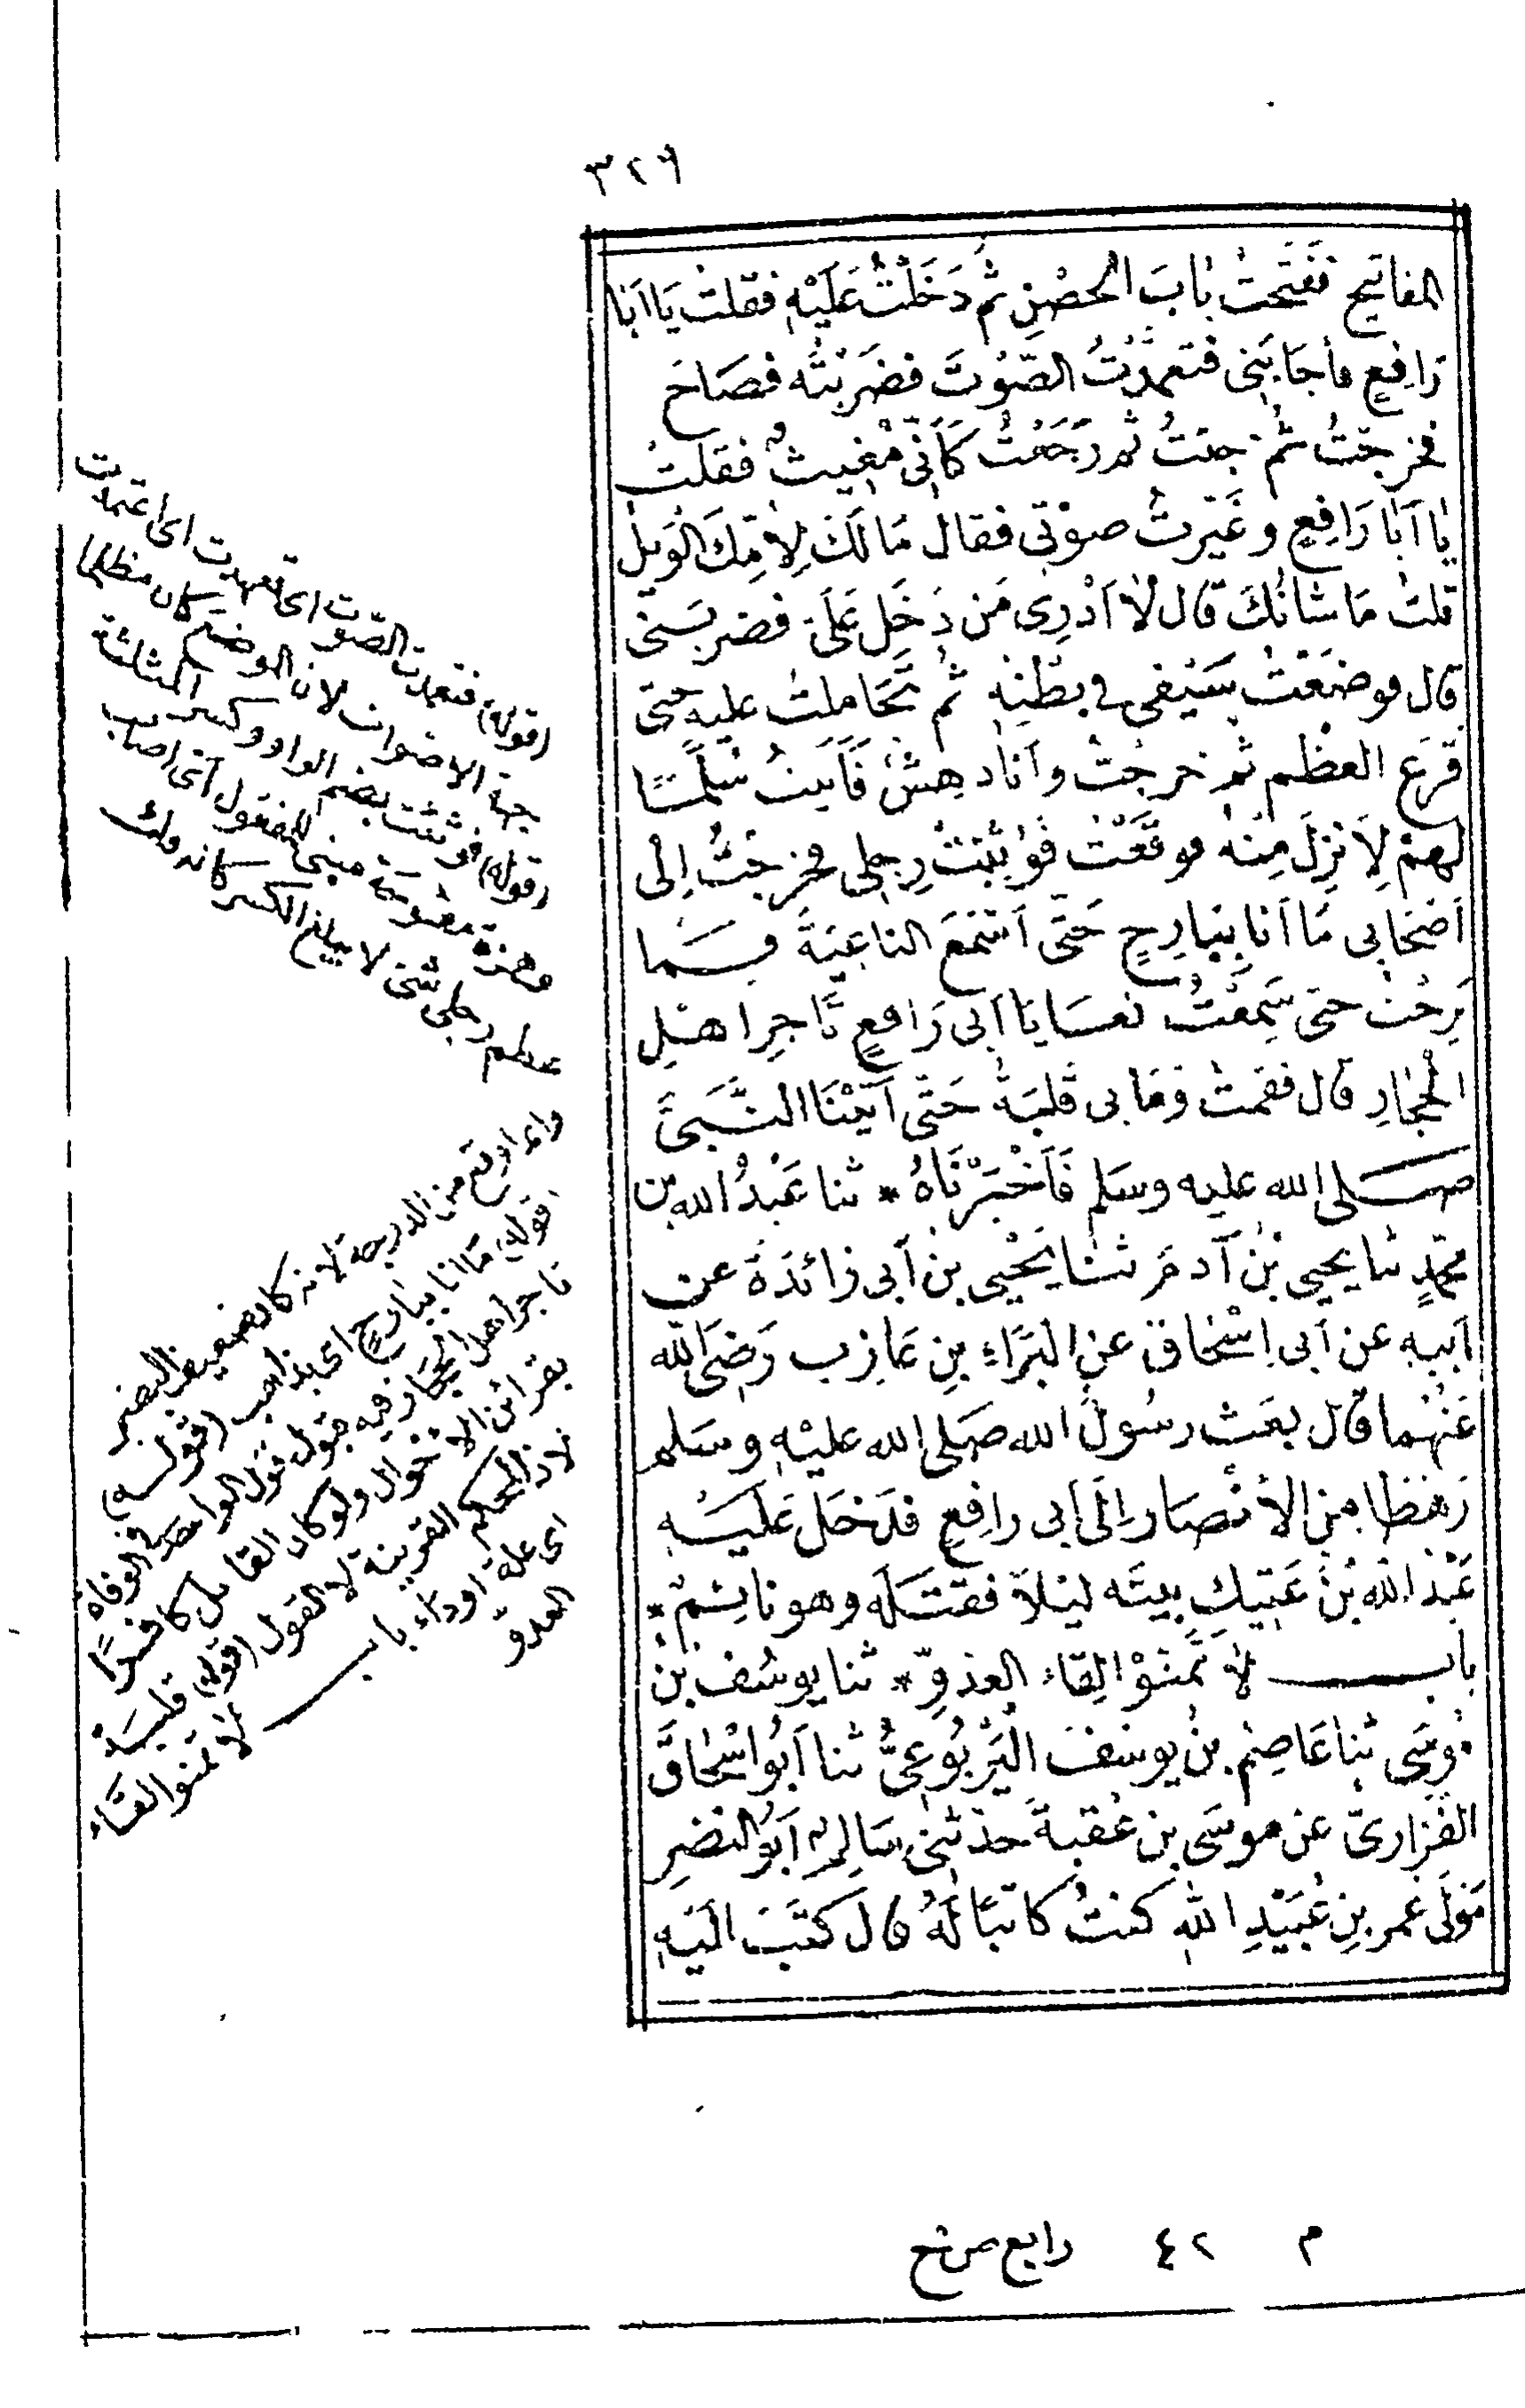 ٣٢٩
المفاتيح ففتحتُ بابَ الحصْنِ ثم دَخَلْتُ عَلَيْهِ فقلتُ يَا اَبَا
رَافِعٍ فأجَابَنِى فتعمَّدْتُ الصّوْتَ فضَرَبْتُه فصَاحَ
فخرجْتُ ثم جئتُ ثم رَجَعْتُ كَأَنّى مُغِيثٌ فقلتُ
يَا اَبَا رَافِعٍ وغَيّرتُ صوْتى فقالَ مَالَكَ لِأُمِّكَ الوَيلُ
قلتُ مَا شأنُكَ قال لاَ اَدْرِى مَن دَخَلَ عَلَىّ فضربَنى
قال فوضَعْتُ سَيْفى فى بطْنِهِ ثم تحَامَلتُ عليهِ حتى
قَرَعَ العظْمَ ثم خرجْتُ وأنَا دهِشٌ فَأَتيتُ سُلَّمًا
لهمْ لِأَنْزِلَ مِنْهُ فوقَعْتُ فَوُثِئَتْ رِجلى فخرجْتُ اِلى
اَصْحَابى فقلت مَا اَنا بِبَارِحٍ حَتّى اَسْمَعَ الناعِيَةَ فَمَا
بَرِحْتُ حتى سَمِعْتُ نعَايَا اَبى رَافعٍ تَاجِرِ اهْلِ
الحِجَازِ قال فقمتُ وَمَا بى قَلَبَةٌ حَتّى اَتَيْنَا النَّبىَّ
صلى الله عليه وسَلم فَاَخْبَرْنَاهُ * ثنا عَبْدُ الله بن
محمّدٍ ثنا يحيى بْنُ آدمَ ثنَا يَحْيى بنُ اَبى زائدَةَ عن
اَبيهِ عن اَبى اِسْحَاقَ عنِ البَرَاءِ بنِ عَازبٍ رَضىَ الله
عَنْهُما قال بعَثَ رسُولُ الله صَلى الله عليْهِ وسَلم
رَهْطًا مِنَ الأَنْصَار اِلى اَبى رافِعٍ فدَخَلَ عَلَيْهِ
عَبْدُ الله بْنُ عَتِيكٍ بيتَه ليْلاً فقتَلَه وهو نائِمٌ *
باب لاَ تمنَّوْا لِقَاءَ العدُوّ * ثنا يوسُفُ بنُ
مُوسَى ثنا عَاصِمُ بنُ يوسُفَ اليَرْبُوعىُّ ثنا اَبُو اسْحَاقَ
الفَزارىّ عن موسَى بن عُقبةَ حدثنى سَالِمٌ اَبُو النضرِ
مَوْلَى عمر بنِ عُبَيْدِ الله كنتُ كاتبًا لَهُ قال كتَبَ اليَهِ
(قوله) فتعمدت الصّوت اى تعهدت اى اعتمدت
جهة الاصوات لان الموضع كان مظلما
(قوله) فوثئت بضم الواو وكسر المثلثة
وهمزة مفتوحة مبنى للمفعول اى اصاب
عظم رجلى شئ لا يبلغ الكسر كانه فك
وانما وقع من الدرجة لانه كان ضعيف البصر
(قوله) مَا انا ببارحٍ اى بذاهب (قوله)
تاجر اهل الحجاز فيه قبول قول الواحد فى الوفاة
بقرائن الاحوال ولو كان القائل كافرًا
لان المحكم القرينة لا القول (قوله) قلبَةٌ
اى علة او داء باب لا تمنوا لقاء
العدوّ
م ٤٢ رابع ص خ